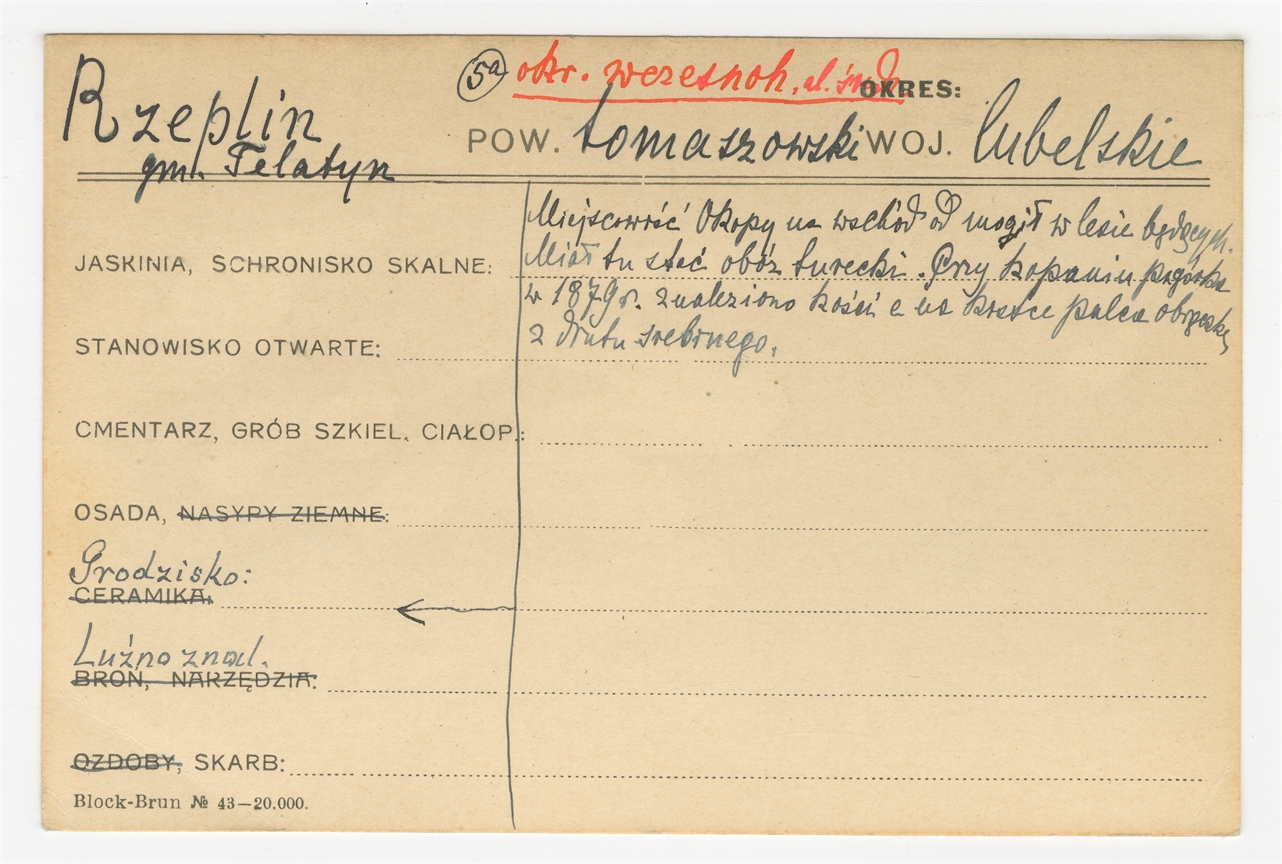 5a okr. wczesnoh. OKRES:
Rzeplin
POW. tomaszowski WOJ. lubelskie
gm. Telatyn
Miejscowość Okopy na wschód od mogił w lesie będących.
JASKINIA, SCHRONISKO SKALNE: Miał tu stać obóz turecki. Przy kopaniu pagórka
w 1879 r. znaleziono kości a na kostce palca obrączkę
STANOWISKO OTWARTE: z drutu srebrnego.
CMENTARZ, GRÓB SZKIEL. CIAŁOP.:
OSADA, NASYPY ZIEMNE:
Grodzisko:
CERAMIKA:
Luźno znal.
BROŃ, NARZĘDZIA:
OZDOBY, SKARB:
Block-Brun № 43—20.000.